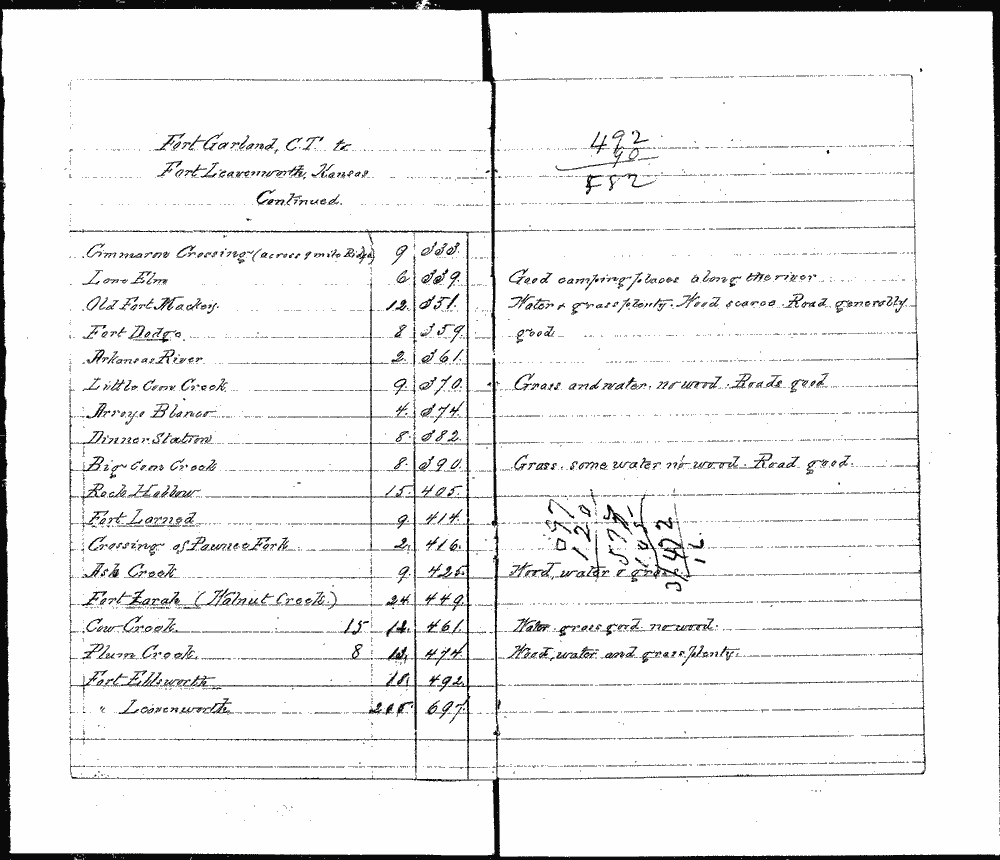 Fort Garland, C.T. to
Fort Leavenworth, Kansas
Continued.
Cimmaron Crossing (across 9 mile Ridge) 9 333.
Lone Elm 6 339. Good camping places along the river
Old Fort Mackey. 12. 351. Water & grass plenty. Wood scarce. Road generally
Fort Dodge. 8 359. good
Arkansas River 2. 361.
Little Coon Creek 9. 370. Grass and water. no wood. Roads good
Arroyo Blanco 4. 374.
Dinner Station 8. 382.
Big Coon Creek 8. 390. Grass. some water no wood. Road good.
Rock Hollow 15. 405.
Fort Larned 9. 414.
Crossing of Pawnee Fork 2. 416.
Ash Creek 9. 425. Wood, water & grass.
Fort Zarah (Walnut Creek.) 24. 449.
Cow Creek. 15 12. 461. Water. grass good no wood.
Plum Creek. 8 13. 474. Wood, water and grass plenty.
Fort Ellsworth 18. 492.
" Leavenworth 205. 697.
492
90
582